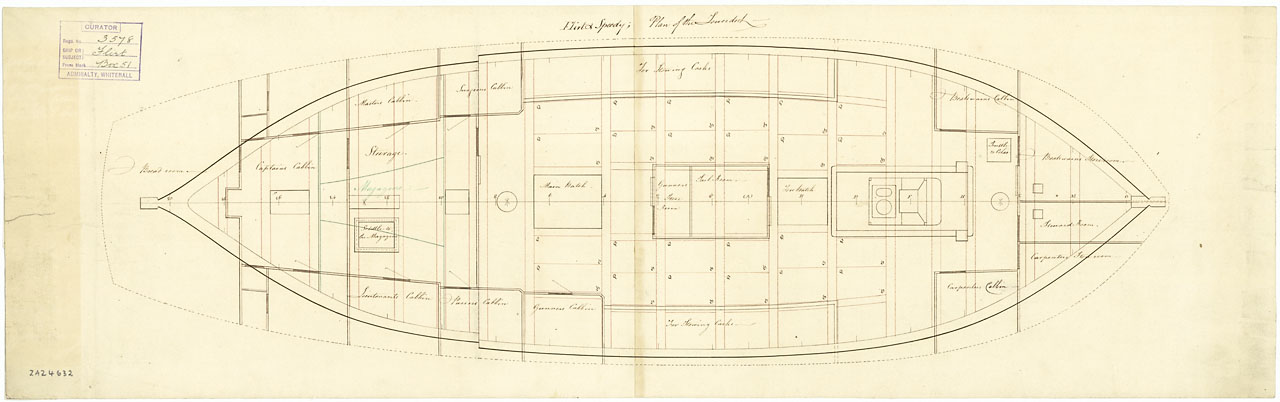 Flirt & Speedy; Plan of the Lowerdeck
CURATOR
Regn. No. 3578
SHIP OR SUBJECT: Flirt
From Book Box 51
ADMIRALTY, WHITEHALL
For Stowing Casks
Surgeons Cabbin
Masters Cabbin
Boatswains Cabbin
Steerage
Captains Cabbin
Bread room
Magazine
Scuttle to the Magazine
Main Hatch
Gunners Store Room
Sail Room
Fore Hatch
Scuttle to
Boatswains Store room
Steward Room
Carpenters Store room
Carpenters Cabbin
Lieutenants Cabbin
Pursers Cabbin
Gunners Cabbin
For Stowing Casks
ZAZ4632